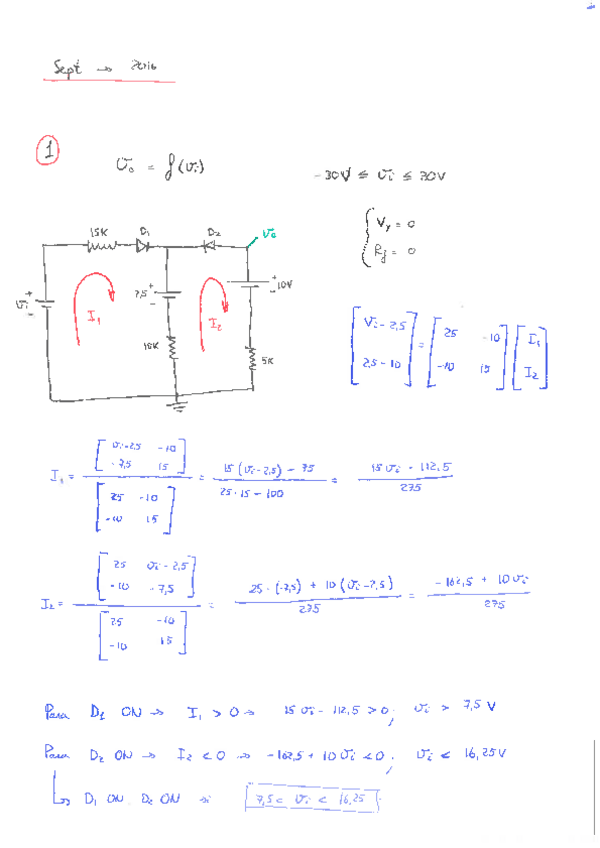 Sept → 2016
1
Vo = f(vi)
-30V ≤ vi ≤ 30V
Vγ = 0
Rf = 0
15K D1 D2 vo
vi + - I1 + - I2 + 10V
5K
[vi-2,5 ; 2,5-10] = [25 -10 ; -10 15] [I1 ; I2]
I1 = [vi-2,5 -10 ; -7,5 15] / [25 -10 ; -10 15] = 15(vi-2,5) - 75 / 25·15 - 100 = 15vi - 112,5 / 275
I2 = [25 vi-2,5 ; -10 -7,5] / [25 -10 ; -10 15] = 25·(-7,5) + 10(vi-2,5) / 275 = -162,5 + 10vi / 275
Para D1 ON → I1 > 0 → 15vi - 112,5 > 0; vi > 7,5V
Para D2 ON → I2 < 0 → -162,5 + 10vi < 0; vi < 16,25V
↳ D1 ON D2 ON si 7,5 < vi < 16,25